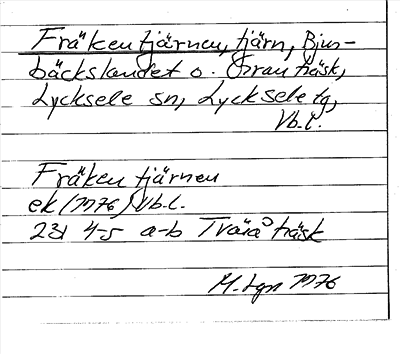 Fräkentjärnen, tjärn, Bjur-
bäckslandet o. Granträsk,
Lycksele sn, Lycksele tg,
Vb.l.
Fräkentjärnen
ek (1976) Vb.l.
23I 4-5 a-b Tväråträsk
M. 1976